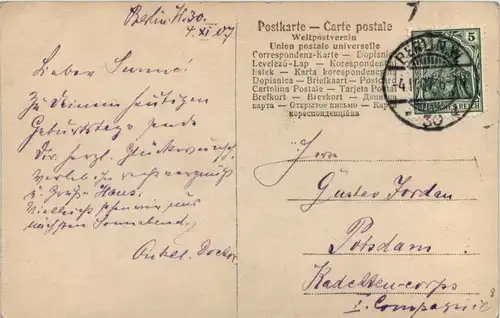 Berlin W.30.
4.XI.07
Lieber
Zu Deinem heutigen
Geburtstage sende
Dir herzl. Glückwunsch
verleb ihn recht vergnügt
u. grüße Hans.
Vielleicht sehen wir uns
nächsten Sonnabend.
Onkel Doctor
7
Postkarte — Carte postale
Weltpostverein
Union postale universelle
Correspondenz-Karte — Dopisnice
Levelező-Lap — Korespondenc
listek — Karta korespondenc
Dopisnica — Briefkaart — Postc
Cartolina Postale — Tarjeta Post
Brefkort — Brevkort — Доп
карта — Открытое письмо — Кар
кореспонденційна
5
BERLIN W.
4.11.07
DEUTSCHES REICH
* 30
Herrn
Gustav Jordan
Potsdam
Kadetten-corps
I. Compagnie
8